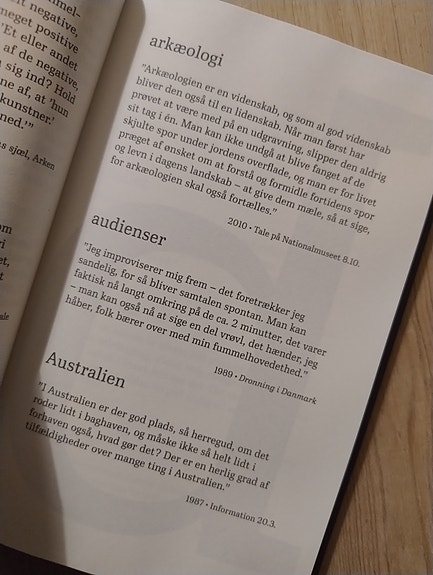 mmel-
lt negative,
neget positive
'Et eller andet
af de negative,
l sig ind? Hold
ne af, at 'hun
kunstner.'
ned.'"
ns sjæl, Arken
om
ri
et,
ale
arkæologi
"Arkæologien er en videnskab, og som al god videnskab
bliver den også til en lidenskab. Når man først har
prøvet at være med på en udgravning, slipper den aldrig
sit tag i én. Man kan ikke undgå at blive fanget af de
skjulte spor under jordens overflade, og man er for livet
præget af ønsket om at forstå og formidle fortidens spor
og levn i dagens landskab – at give dem mæle, så at sige,
for arkæologien skal også fortælles."
2010 • Tale på Nationalmuseet 8.10.
audienser
"Jeg improviserer mig frem – det foretrækker jeg
sandelig, for så bliver samtalen spontan. Man kan
faktisk nå langt omkring på de ca. 2 minutter, det varer
– man kan også nå at sige en del vrøvl, det hænder, jeg
håber, folk bærer over med min fummelhovedethed."
1989 • Dronning i Danmark
Australien
"I Australien er der god plads, så herregud, om det
roder lidt i baghaven, og måske ikke så helt lidt i
forhaven også, hvad gør det? Der er en herlig grad af
tilfældigheder over mange ting i Australien."
1987 • Information 20.3.